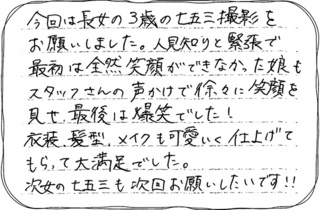 今回は長女の3歳の七五三撮影を
お願いしました。人見知りと緊張で
最初は全然笑顔ができなかった娘も
スタッフさんの声かけで徐々に笑顔を
見せ、最後は爆笑でした!
衣装、髪型、メイクも可愛いく仕上げて
もらって大満足でした。
次女の七五三も次回お願いしたいです!!